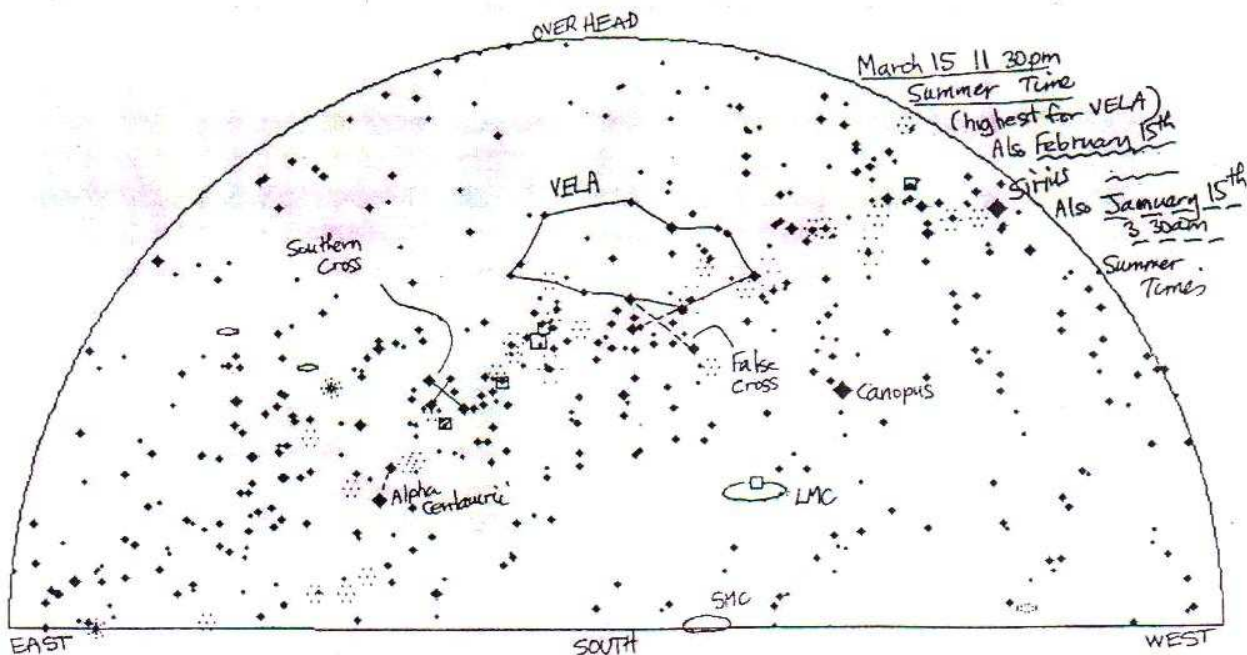 OVERHEAD
March 15 11 30pm
Summer Time
(highest for VELA)
Also February 15th
Sirius
Also January 15th
3 30am
Summer
Times
VELA
Southern
Cross
False
Cross
Canopus
Alpha
Centauri
LMC
SMC
EAST
SOUTH
WEST